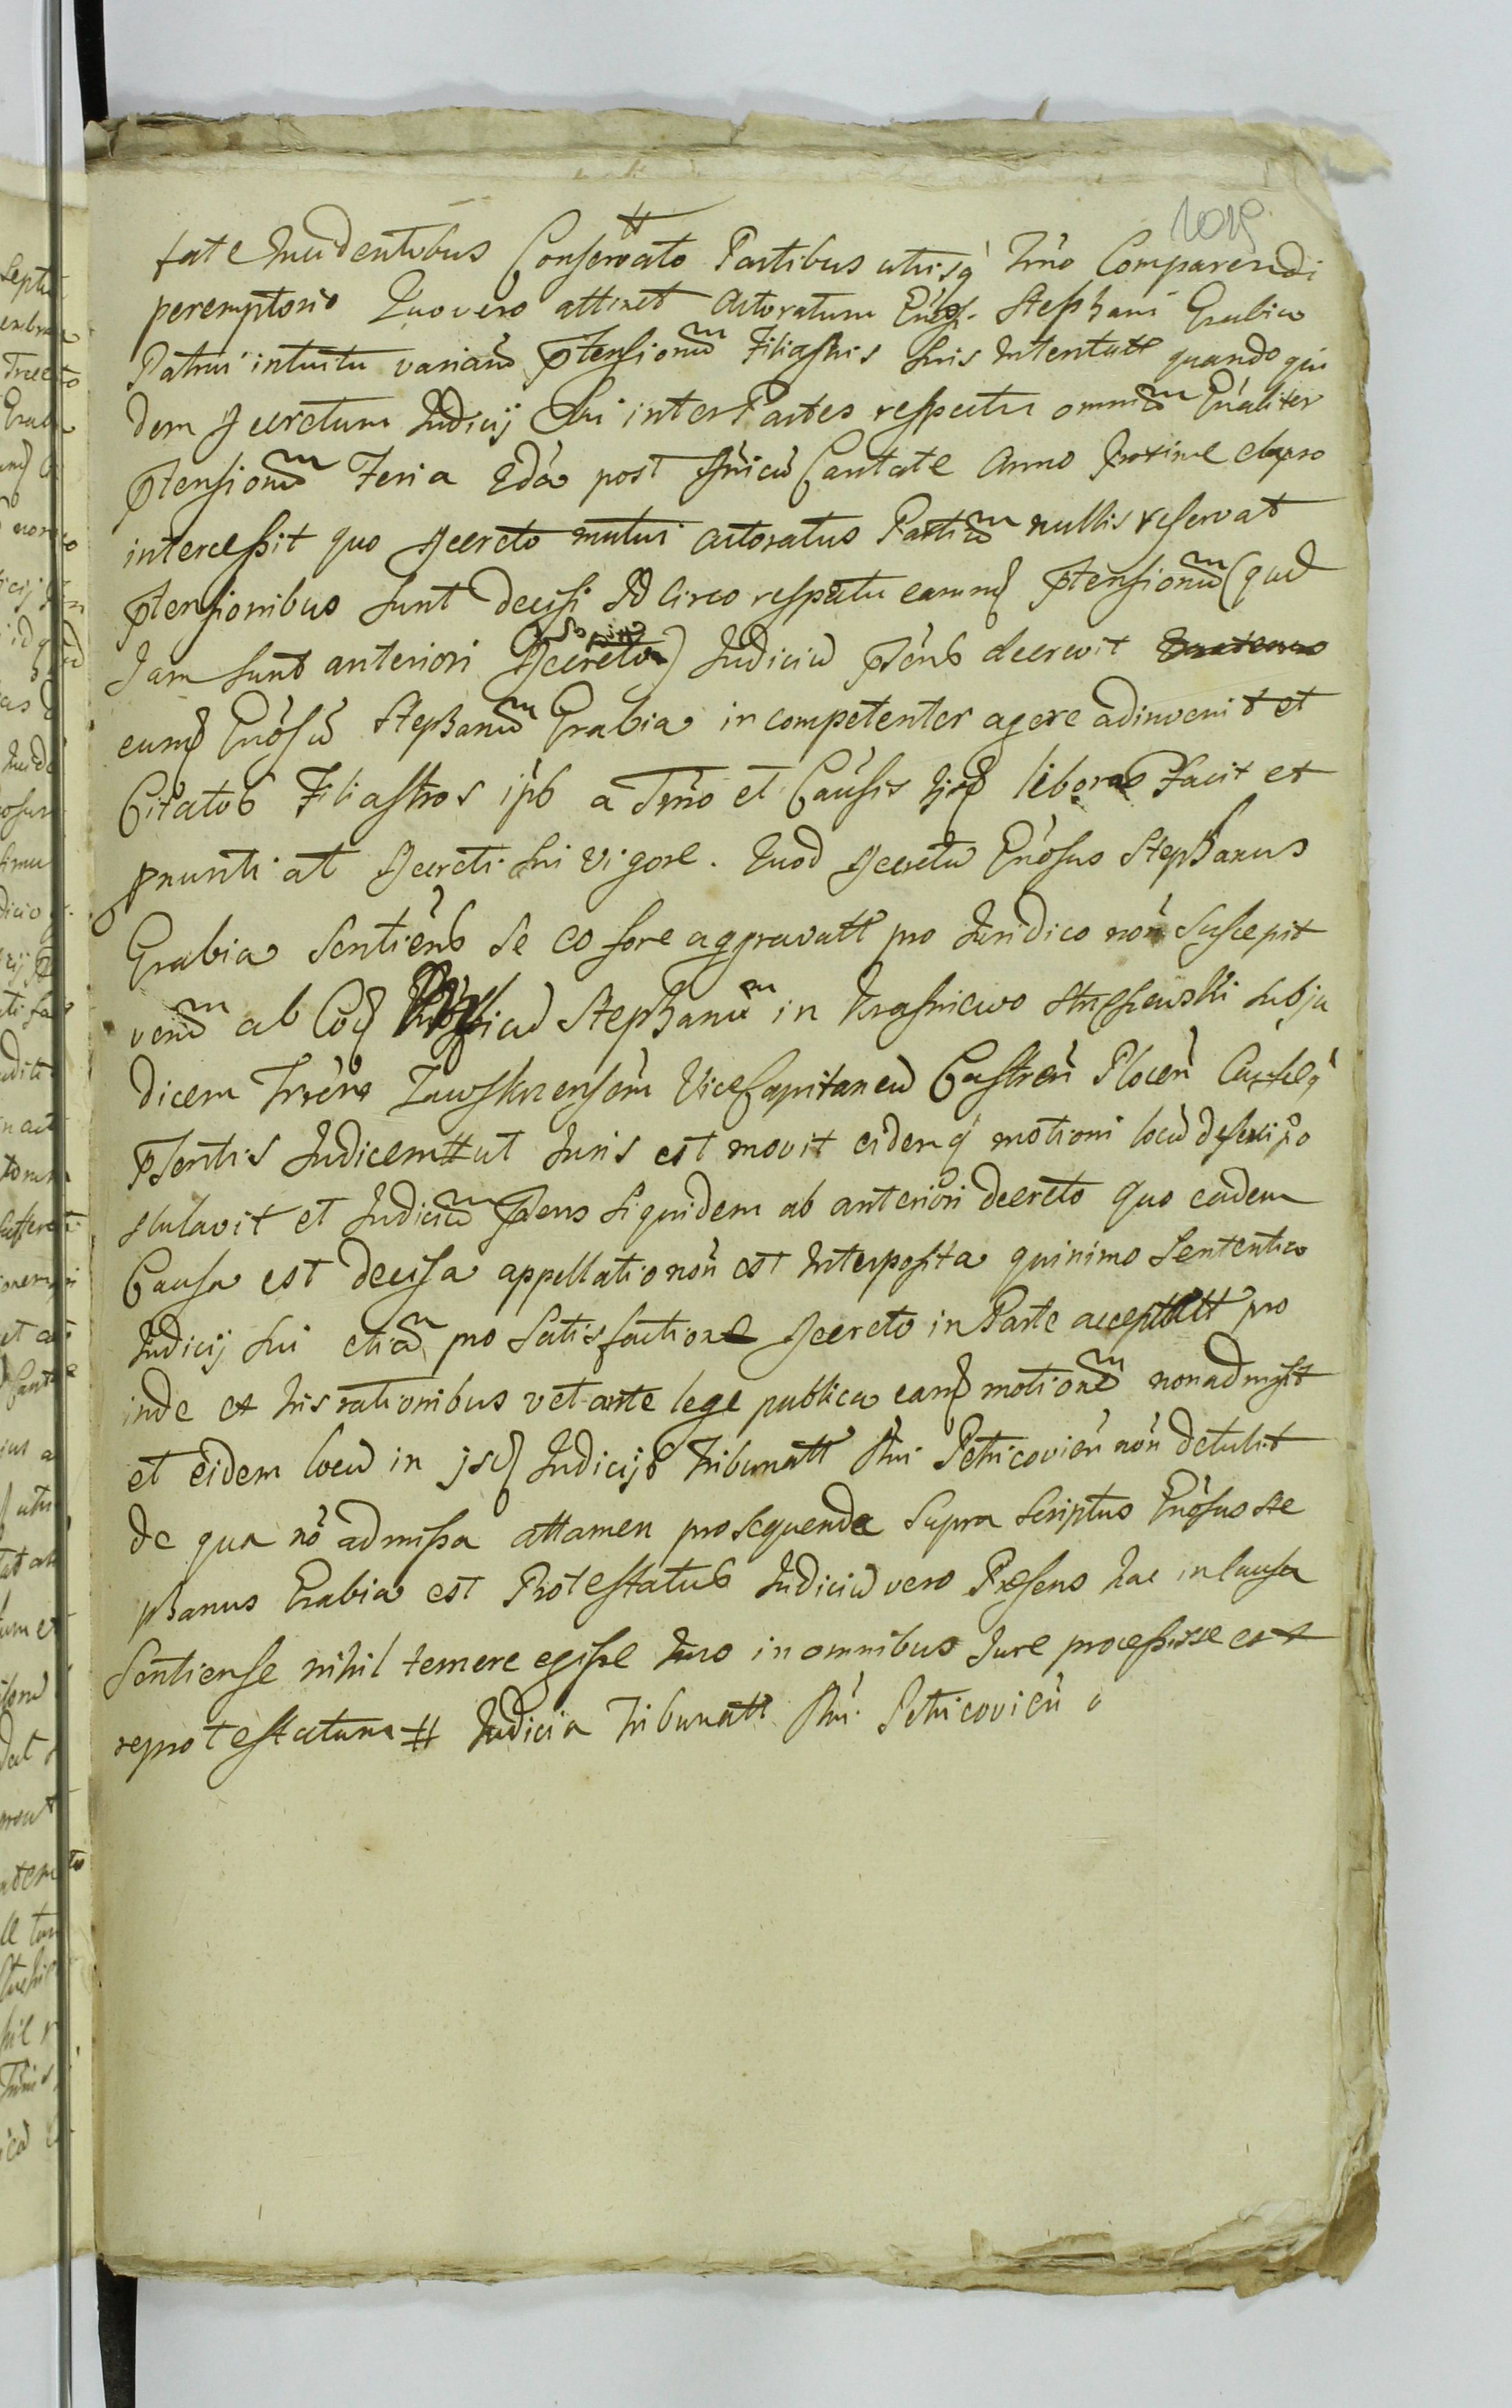 1019
tate Incidentibus Conservato Partibus utrisq̀ Tr̃no Comparendi
peremptorio Quo vero attinet Actoratum G̃nosi Stephani Grabia
Patrui intuitu variarũ p̃tensionũ Filiastris suis Intentatt quando qui
dem Decretum Judicij Sui inter Partes respectu omniũ G̃naliter
p̃tensionũ Feria 2dà post D̃nicã Cantate Anno proxime elapso
intercessit quo Decreto mutui actoratus Partiũ nullis reservat
p̃tensionibus sunt decisi Id circo respectu earund p̃tensionũ (quæ
Jam sunt anteriori Decreto sopitæ) Judiciũ p̃ns decrevit
eund G̃nosũ Stephanũ Grabia incompetenter agere adinvenit et
Citatos Filiastros ip̃s a Tr̃no et Causis ijsd liberos Facit et
p̃nuntiat Decreti sui vigore. Quod Decretũ G̃nosus Stephanus
Grabia Sentiens se eo fore aggravatt pro Juridico nõn suscepit
verũ ab eod Judiciũ Stephanũ in Krasniewo Strzeszewski Subju
dicem Trr̃ne Zawskrzensem ViceCapitaneũ Castreñ Ploceñ Causeq̀
p̃sentis Judicem # ut Juris est movit eidemq̀ motioni locũ deferri po
stulavit et Judiciũ p̃sens siquidem ab anteriori decreto quo eadem
Causa est decisa appellatio nõn est Interposita quinimo Sententia
Judicij sui etiã pro satisfactione Decreto in Parte acceptatt pro
inde ex his rationibus vetante lege publica eand motionẽ non admisit
et eidem locũ in jsd Judicijs Tribunatt Rñi Petricovieñ nõn detulit
de qua nõ admissa attamen prosequenda supra scriptus G̃nosus Ste
phanus Grabia est Protestatus Judiciũ vero Præsens hac in Causa
Sentiens se nihil temere egisse Imo in omnibus Jure processisse est
reprotestatum # Judicia Tribunatt Rñi Petricovieñ